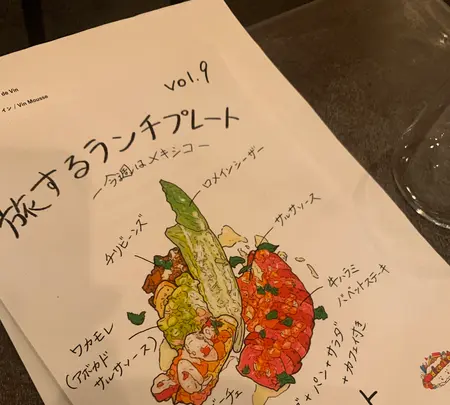 de Vin
イン / Vin Mousse
vol.9
旅するランチプレート
ー今週はメキシコー
ロメインシーザー
チリビーンズ
サルサソース
牛ハラミ
バベットステーキ
ワカモレ
(アボカド
サルサソース)
ビーチェ
+パン+サラダ
+カフェ付き
ト